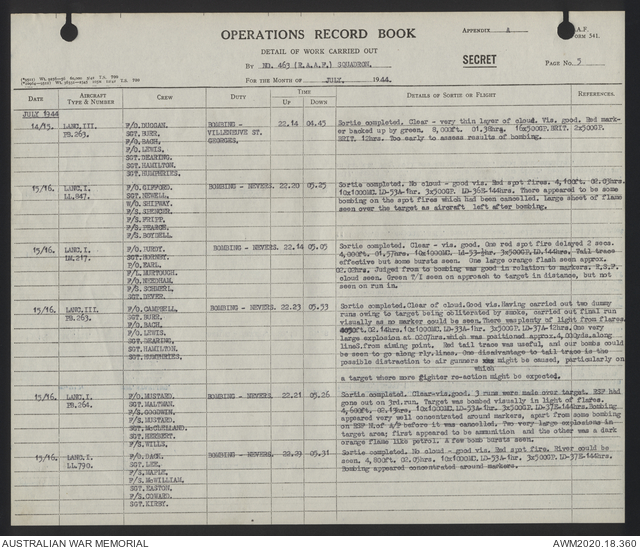 OPERATIONS RECORD BOOK
APPENDIX A
R.A.F. FORM 541.
DETAIL OF WORK CARRIED OUT
BY NO. 463 (R.A.A.F.) SQUADRON.
SECRET
PAGE NO. 5
FOR THE MONTH OF JULY, 1944.
DATE
AIRCRAFT TYPE & NUMBER
CREW
DUTY
TIME
UP
DOWN
DETAILS OF SORTIE OR FLIGHT
REFERENCES.
JULY 1944
14/15. LANC.III. PB.263.
F/O.DUGGAN.
SGT.BURR.
F/O.BACH.
F/O.LEWIS.
SGT.DEARING.
SGT.HAMILTON.
SGT.HUMPHRIES.
BOMBING - VILLENEUVE ST. GEORGES.
22.14 04.45
Sortie completed. Clear - very thin layer of cloud. Vis. good. Red mark-
er backed up by green. 8,000ft. 01.38hrs. 16x500GP.BRIT. 2x500GP.
BRIT. 12hrs. Too early to assess results of bombing.
15/16. LANC.I. LL.847.
F/O.GIFFORD.
SGT.NEWELL.
W/O.SHIPWAY.
F/S.SPENCER.
F/S.FRIPP.
F/S.PEARCE.
F/S.BOYDELL.
BOMBING - NEVERS.
22.20 05.25
Sortie completed. No cloud - good vis. Red spot fires. 4,100ft. 02.03hrs.
10x1000MC.LD-53A-1hr. 3x500GP.LD-36E-144hrs. There appeared to be some
bombing on the spot fires which had been cancelled. Large sheet of flame
seen over the target as aircraft left after bombing.
15/16. LANC.I. LM.217.
F/O.PURDY.
SGT.HORNBY.
F/O.EARL.
F/L.MURTOUGH.
F/O.NEEDHAM.
F/S.SCHERL.
SGT.DEVER.
BOMBING - NEVERS.
22.14 05.05
Sortie completed. Clear - vis. good. One red spot fire delayed 2 secs.
4,800ft. 01.57hrs. 10x1000MC. Ld-53-½hr. 3x500GP.LD.144hrs. Tail trace
effective but some bursts seen. One large orange flash seen approx.
02.02hrs. Judged from to bombing was good in relation to markers. R.S.F.
cloud seen. Green T/I seen on approach to target in distance, but not
seen on run in.
15/16. LANC.III. PB.263.
F/O.CAMPBELL.
SGT.BURR.
F/O.BACH.
F/O.LEWIS.
SGT.DEARING.
SGT.HAMILTON.
SGT.HUMPHRIES.
BOMBING - NEVERS.
22.23 05.33
Sortie completed.Clear of cloud.Good vis.Having carried out two dummy
runs owing to target being obliterated by smoke, carried out final run
visually as no marker could be seen.There was plenty of light from flares.
ft.02.14hrs.10x1000MC.LD-33A-1hr. 3x500GP.LD-37A-12hrs.One very
large explosion at 0207hrs.which was positioned approx.4,000yds.along
line from aiming point. Red tail trace was useful, and our bombs could
be seen to go along rly.lines. One disadvantage to tail trace is the
possible distraction to air gunners might be caused, particularly on
which
a target where more fighter re-action might be expected.
15/16. LANC.I. PB.264.
F/O.MUSTARD.
SGT.MALTMAN.
F/S.GOODWIN.
F/S.MUSTARD.
SGT.McCLELLAND.
SGT.HERBERT.
F/S.WILLS.
BOMBING - NEVERS.
22.21 05.26
Sortie completed. Clear-vis.good. 3 runs were made over target. RSF had
gone out on 3rd.run. Target was bombed visually in light of flares.
4,600ft. 02.13hrs. 10x1000MC.LD-33A-1hr. 3x500GP.LD-37E-144hrs.Bombing
appeared very well concentrated around markers, apart from some bombing
on RSF N.of A/P before it was cancelled. Two very large explosions in
target area; first appeared to be ammunition and the other was a dark
orange flame like petrol. A few bomb bursts seen.
15/16. LANC.I. LL.790.
F/O.DACK.
SGT.LEE.
F/S.MAPLE.
F/S.McWILLIAM.
SGT.EASTON.
F/S.COWARD.
SGT.KIRBY.
BOMBING - NEVERS.
22.29 05.31
Sortie completed. No cloud - good vis. Red spot fire. River could be
seen. 4,800ft. 02.05hrs. 10x1000MC.LD-53A-1hr. 3x500GP.LD-37E-144hrs.
Bombing appeared concentrated around markers.
AUSTRALIAN WAR MEMORIAL
AWM2020.18.360